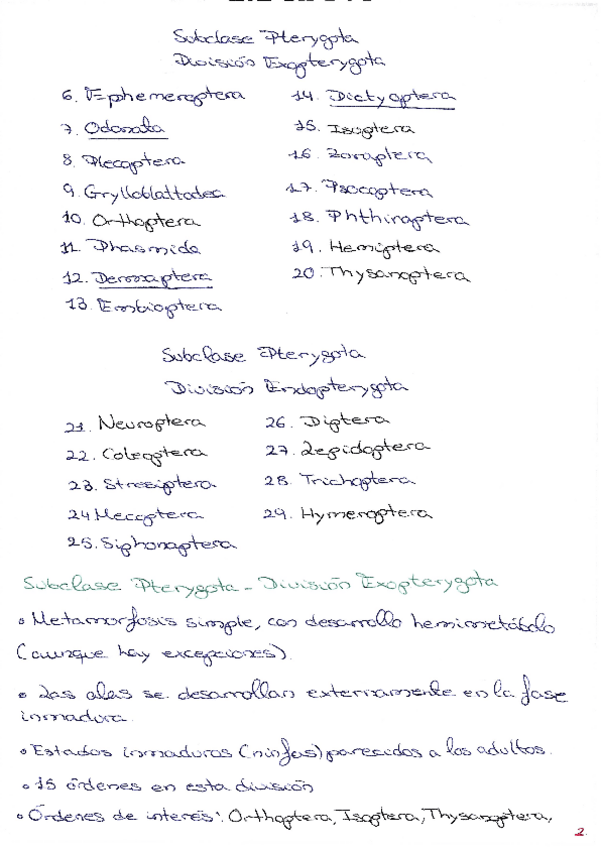 Subclase Pterygota
División Exopterygota
6. Ephemeroptera
7. Odonata
8. Plecoptera
9. Grylloblattodea
10. Orthoptera
11. Phasmida
12. Dermaptera
13. Embioptera
14. Dictyoptera
15. Isoptera
16. Zoraptera
17. Psocoptera
18. Phthiraptera
19. Hemiptera
20. Thysanoptera
Subclase Pterygota
División Endopterygota
21. Neuroptera
22. Coleoptera
23. Stresiptera
24 Mecoptera
25. Siphonaptera
26. Diptera
27. Lepidoptera
28. Trichoptera
29. Hymenoptera
Subclase Pterygota - División Exopterygota
• Metamorfosis simple, con desarrollo hemimetábolo
(aunque hay excepciones).
• Las alas se desarrollan externamente en la fase
inmadura.
• Estados inmaduros (ninfas) parecidos a los adultos.
• 15 órdenes en esta división
• Órdenes de interés: Orthoptera, Isoptera, Thysanoptera,
2.